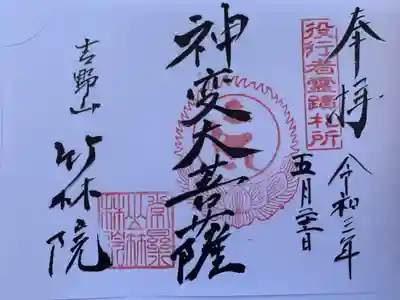 奉拝
役行者霊蹟札所
令和三年
五月二十二日
神変大菩薩
吉野山
竹林院